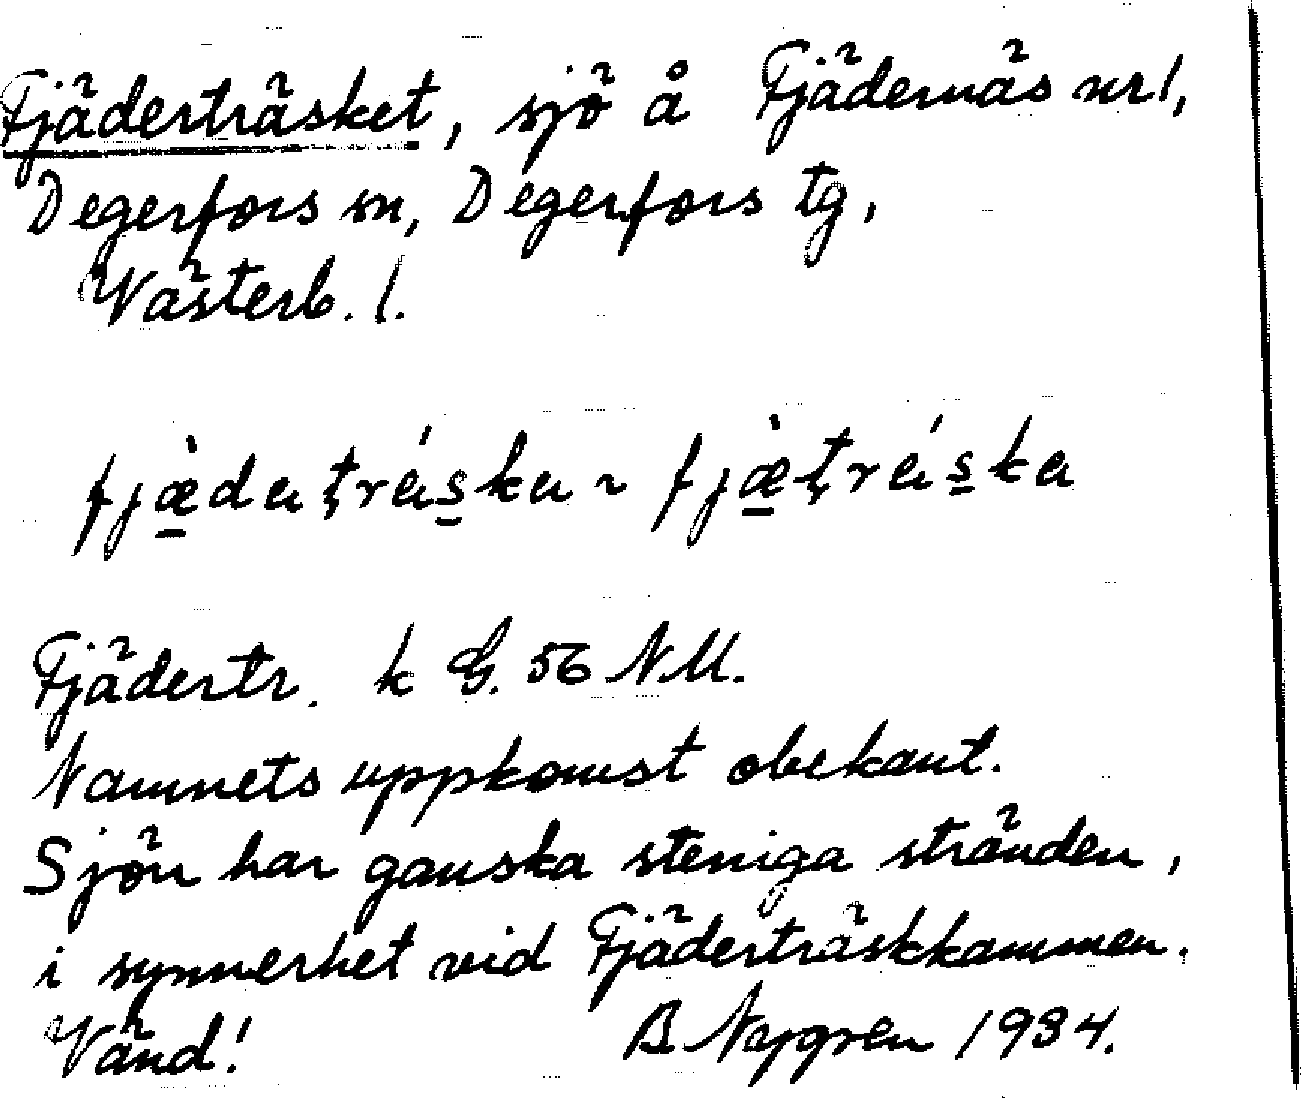 Fjäderträsket, sjö å Fjädernäs nr 1,
Degerfors sn, Degerfors tg,
Västerb. l.
fjæ̠̀datṭrás̠ka ~ fjæ̠̀ṭrás̠ka
Fjädertr. k G. 56 NM.
Namnets uppkomst obekant.
Sjön har ganska steniga stränder,
i synnerhet vid Fjäderträskkammen.
Vänd! B Nygren 1934.